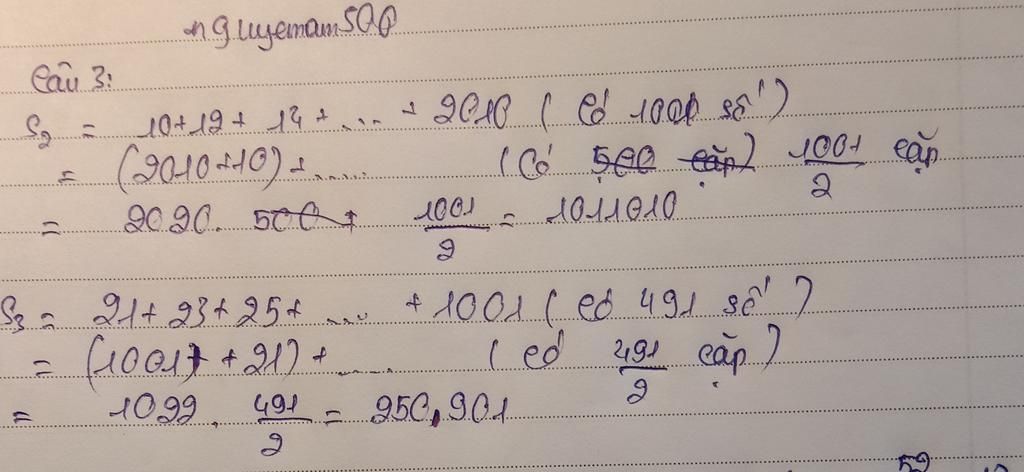 nguyetnam500
Câu 3:
S₂ = 10+12+ 14+ .... + 2010 ( có 1001 số )
= (2010+10)+...... (Có 500 cặp) 1001/2 cặp
= 2020. 500 + 1001/2 = 1011010
S₃ = 21+ 23+25+ .... + 1001 ( có 491 số )
= (1001 + 21) + ...... ( có 491/2 cặp )
= 1022 . 491/2 = 250,901
52